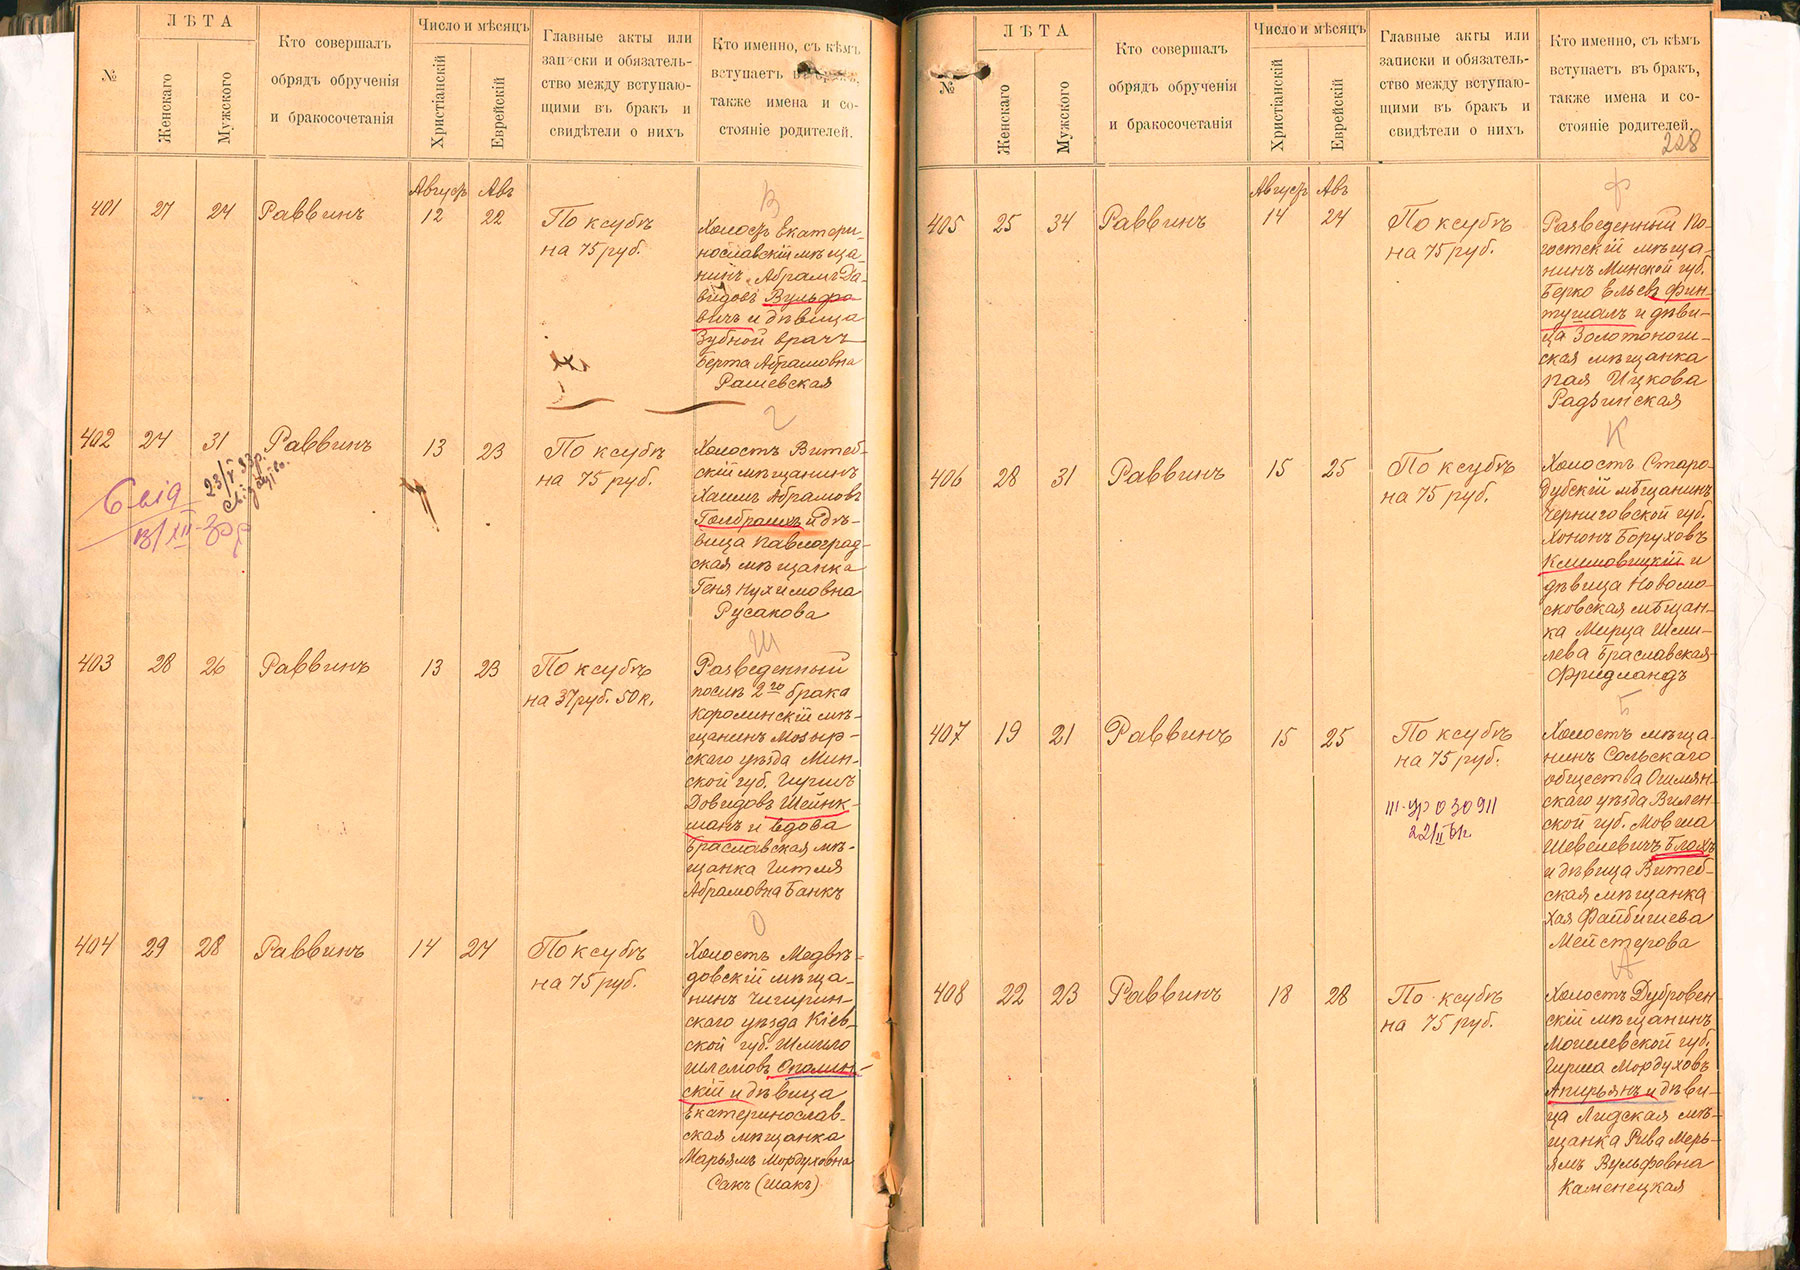 №
ЛѢТА
Женскаго
Мужского
Кто совершалъ
обрядъ обрученія
и бракосочетанія
Число и мѣсяцъ
Христіанскій
Еврейскій
Главные акты или
записки и обязатель-
ство между вступаю-
щими въ бракъ и
свидѣтели о нихъ
Кто именно, съ кѣмъ
вступаетъ въ бракъ,
также имена и со-
стояніе родителей.
Августъ Авъ
401 27 24 Раввинъ 12 22 По ксубѣ
на 75 руб.
В
Холостъ Екатери-
нославскій мѣща-
нинъ Абрамъ Да-
видовъ Вульфо-
вичъ и дѣвица
Зубной врачъ
Берта Абрамовна
Рашевская
402 24 31 Раввинъ 13 23 По ксубѣ
на 75 руб.
Г
Холостъ Витеб-
скій мѣщанинъ
Хаимъ Абрамовъ
и дѣ-
вица Павлоград-
ская мѣщанка
Геня Нухимовна
Русакова
403 28 26 Раввинъ 13 23 По ксубѣ
на 37 руб. 50 к.
Ш
Разведенный
послѣ 2го брака
Королинскій мѣ-
щанинъ Мозыр-
скаго уѣзда Мин-
ской губ. Гиршъ
Довидовъ Шейнк-
манъ и вдова
Браславская мѣ-
щанка Гителя
Абрамовна Банкъ
404 29 28 Раввинъ 14 24 По ксубѣ
на 75 руб.
О
Холостъ Медвѣ-
довскій мѣща-
нинъ Чигирин-
скаго уѣзда Кіев-
ской губ. Шмило
Шлемовъ Ополин-
скій и дѣвица
Екатеринослав-
ская мѣщанка
Марьямъ Мордуховна
Сакъ (Шакъ)
№
ЛѢТА
Женскаго
Мужского
Кто совершалъ
обрядъ обрученія
и бракосочетанія
Число и мѣсяцъ
Христіанскій
Еврейскій
Главные акты или
записки и обязатель-
ство между вступаю-
щими въ бракъ и
свидѣтели о нихъ
Кто именно, съ кѣмъ
вступаетъ въ бракъ,
также имена и со-
стояніе родителей.
228
Августъ Авъ
405 25 34 Раввинъ 14 24 По ксубѣ
на 75 руб.
Ф
Разведенный По-
гостскій мѣща-
нинъ Минской губ.
Берко Ельевъ Фин-
тушалъ и дѣви-
ца Золотоно-
ская мѣщанка
Ицкова
Радзинская
406 28 31 Раввинъ 15 25 По ксубѣ
на 75 руб.
К
Холостъ Старо-
дубскій мѣщанинъ
Черниговской губ.
Хононъ Боруховъ
Климовицкій и
дѣвица Новомо-
сковская мѣщан-
ка Мирца Шми-
лева Браславская-
Фридландъ
407 19 21 Раввинъ 15 25 По ксубѣ
на 75 руб.
Б
Холостъ мѣща-
нинъ Сольскаго
общества Ошмян-
скаго уѣзда Вилен-
ской губ. Мовша
Шевелевичъ Блохъ
и дѣвица Витеб-
ская мѣщанка
Хая Файбишева
Мейстерова
408 22 23 Раввинъ 18 28 По ксубѣ
на 75 руб.
А
Холостъ Дубровен-
скій мѣщанинъ
Могилевской губ.
Гирша Мордуховъ
Апирьянъ и дѣви-
ца Лидская мѣ-
щанка Рива Мерь-
ямъ Вульфовна
Каменецкая